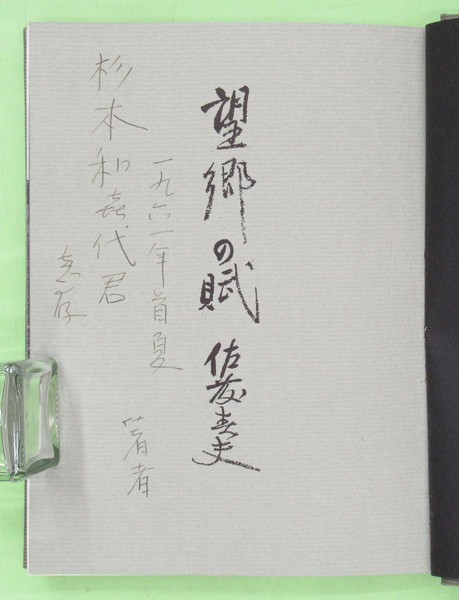 望郷の賦 佐藤春夫
一九六一年首夏 著者
杉本和喜代君
恵存